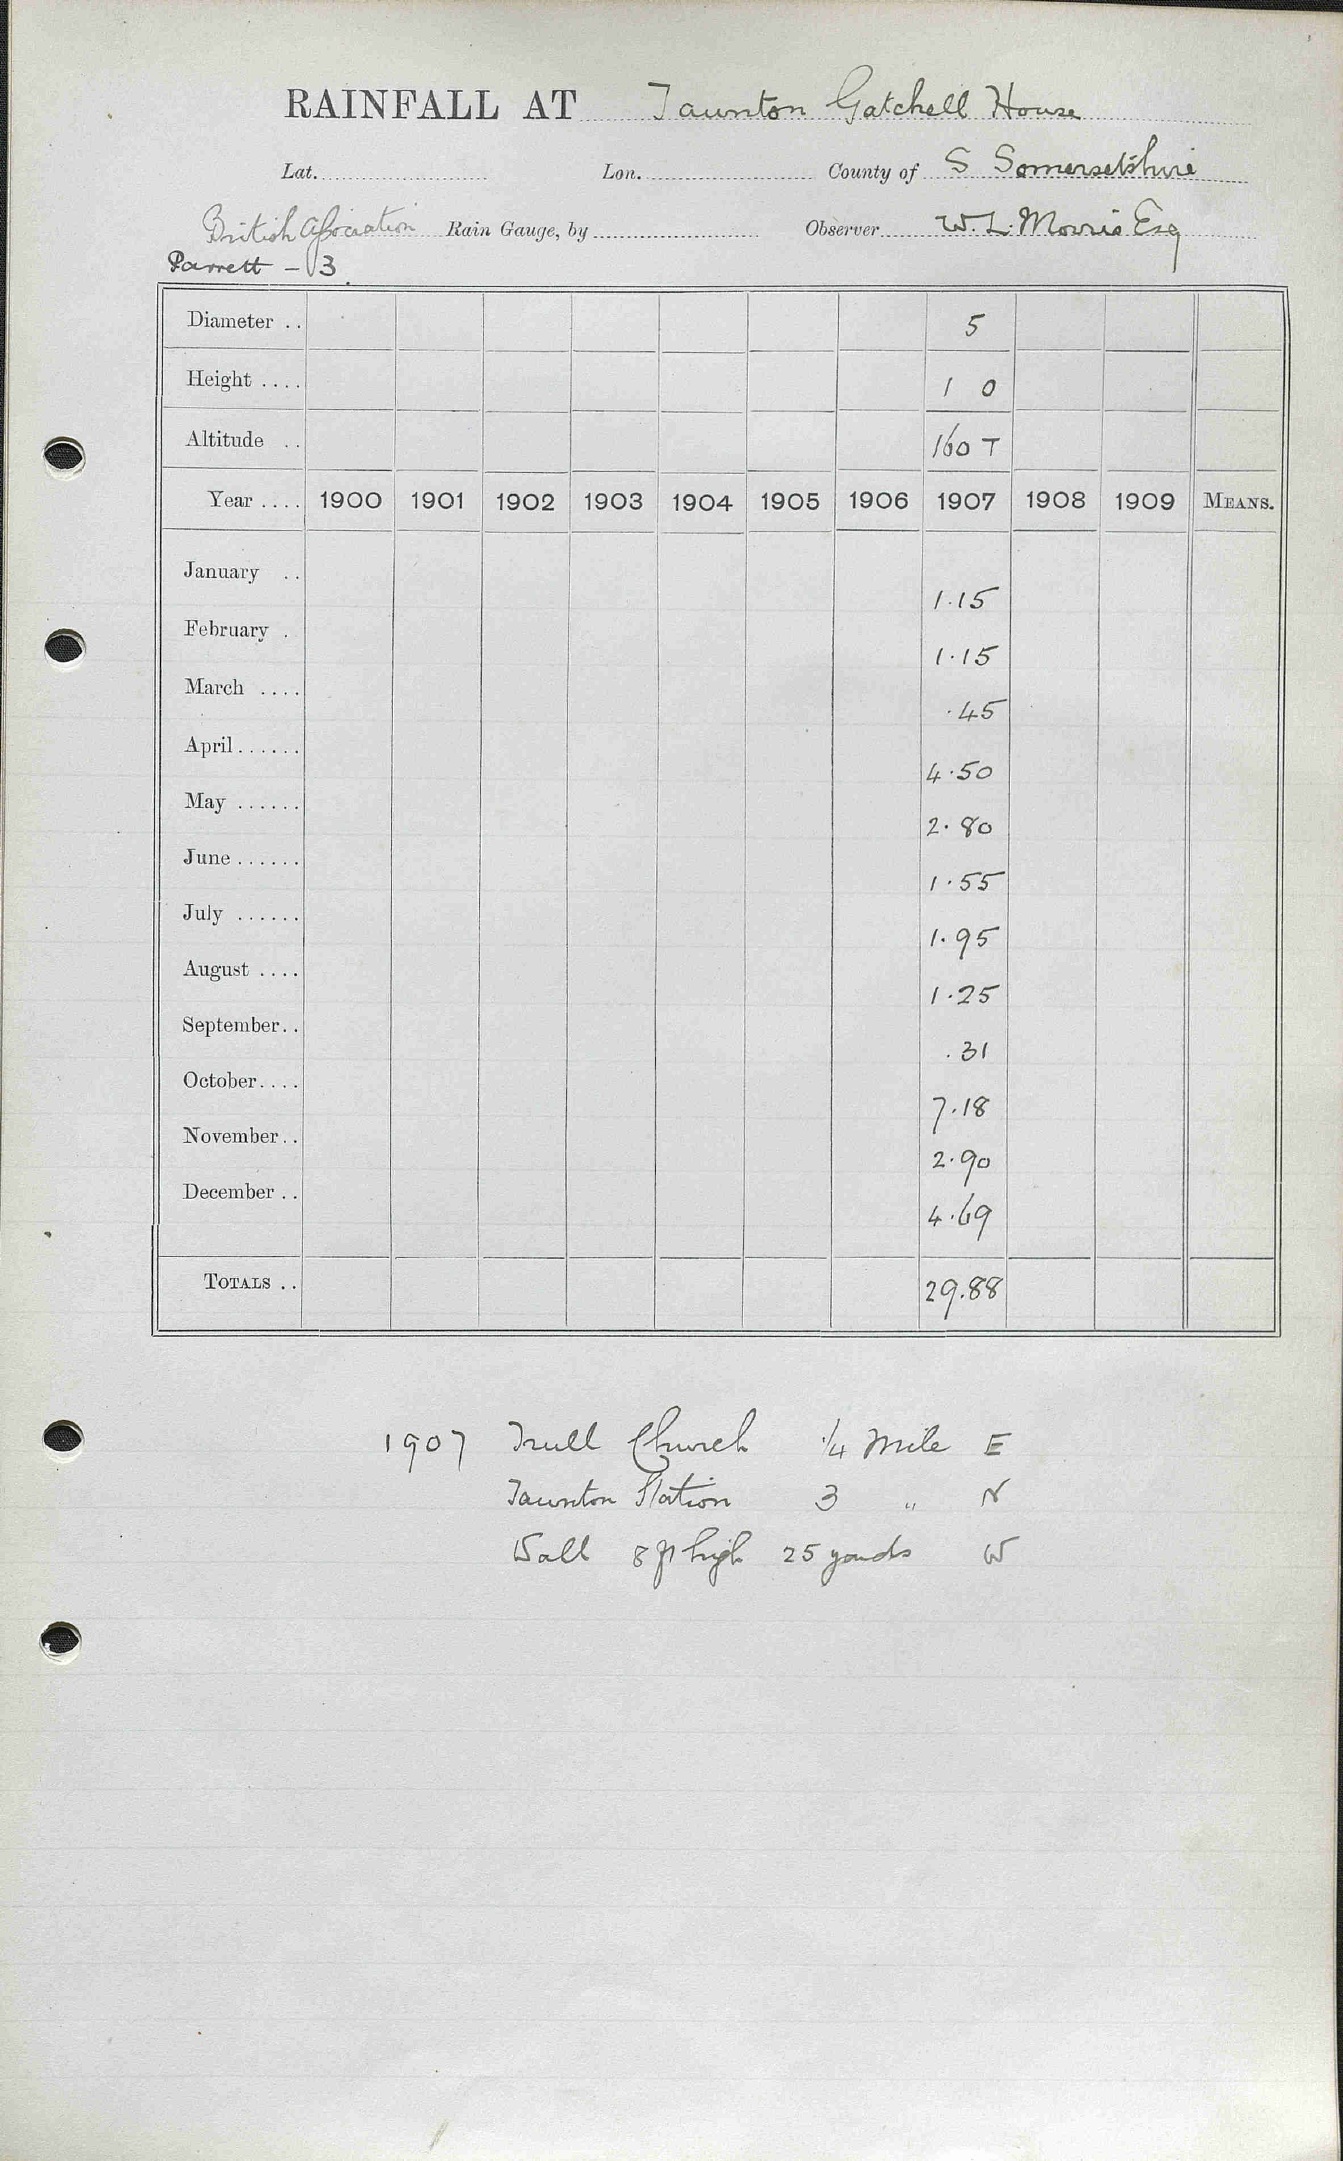 RAINFALL AT Taunton Gatchell House
Lat. Lon. County of S Somersetshire
British Association Rain Gauge, by Observer W. L. Morris Esq
Parrett - 3
Diameter .. 5
Height .... 1 0
Altitude .. 160 T
Year .... 1900 1901 1902 1903 1904 1905 1906 1907 1908 1909 MEANS.
January .. 1.15
February . 1.15
March .... .45
April...... 4.50
May ...... 2.80
June...... 1.55
July ...... 1.95
August .... 1.25
September.. .31
October.... 7.18
November.. 2.90
December .. 4.69
TOTALS .. 29.88
1907 Trull Church 1/4 Mile E
Taunton Station 3 " N
Wall 8 ft high 25 yards W